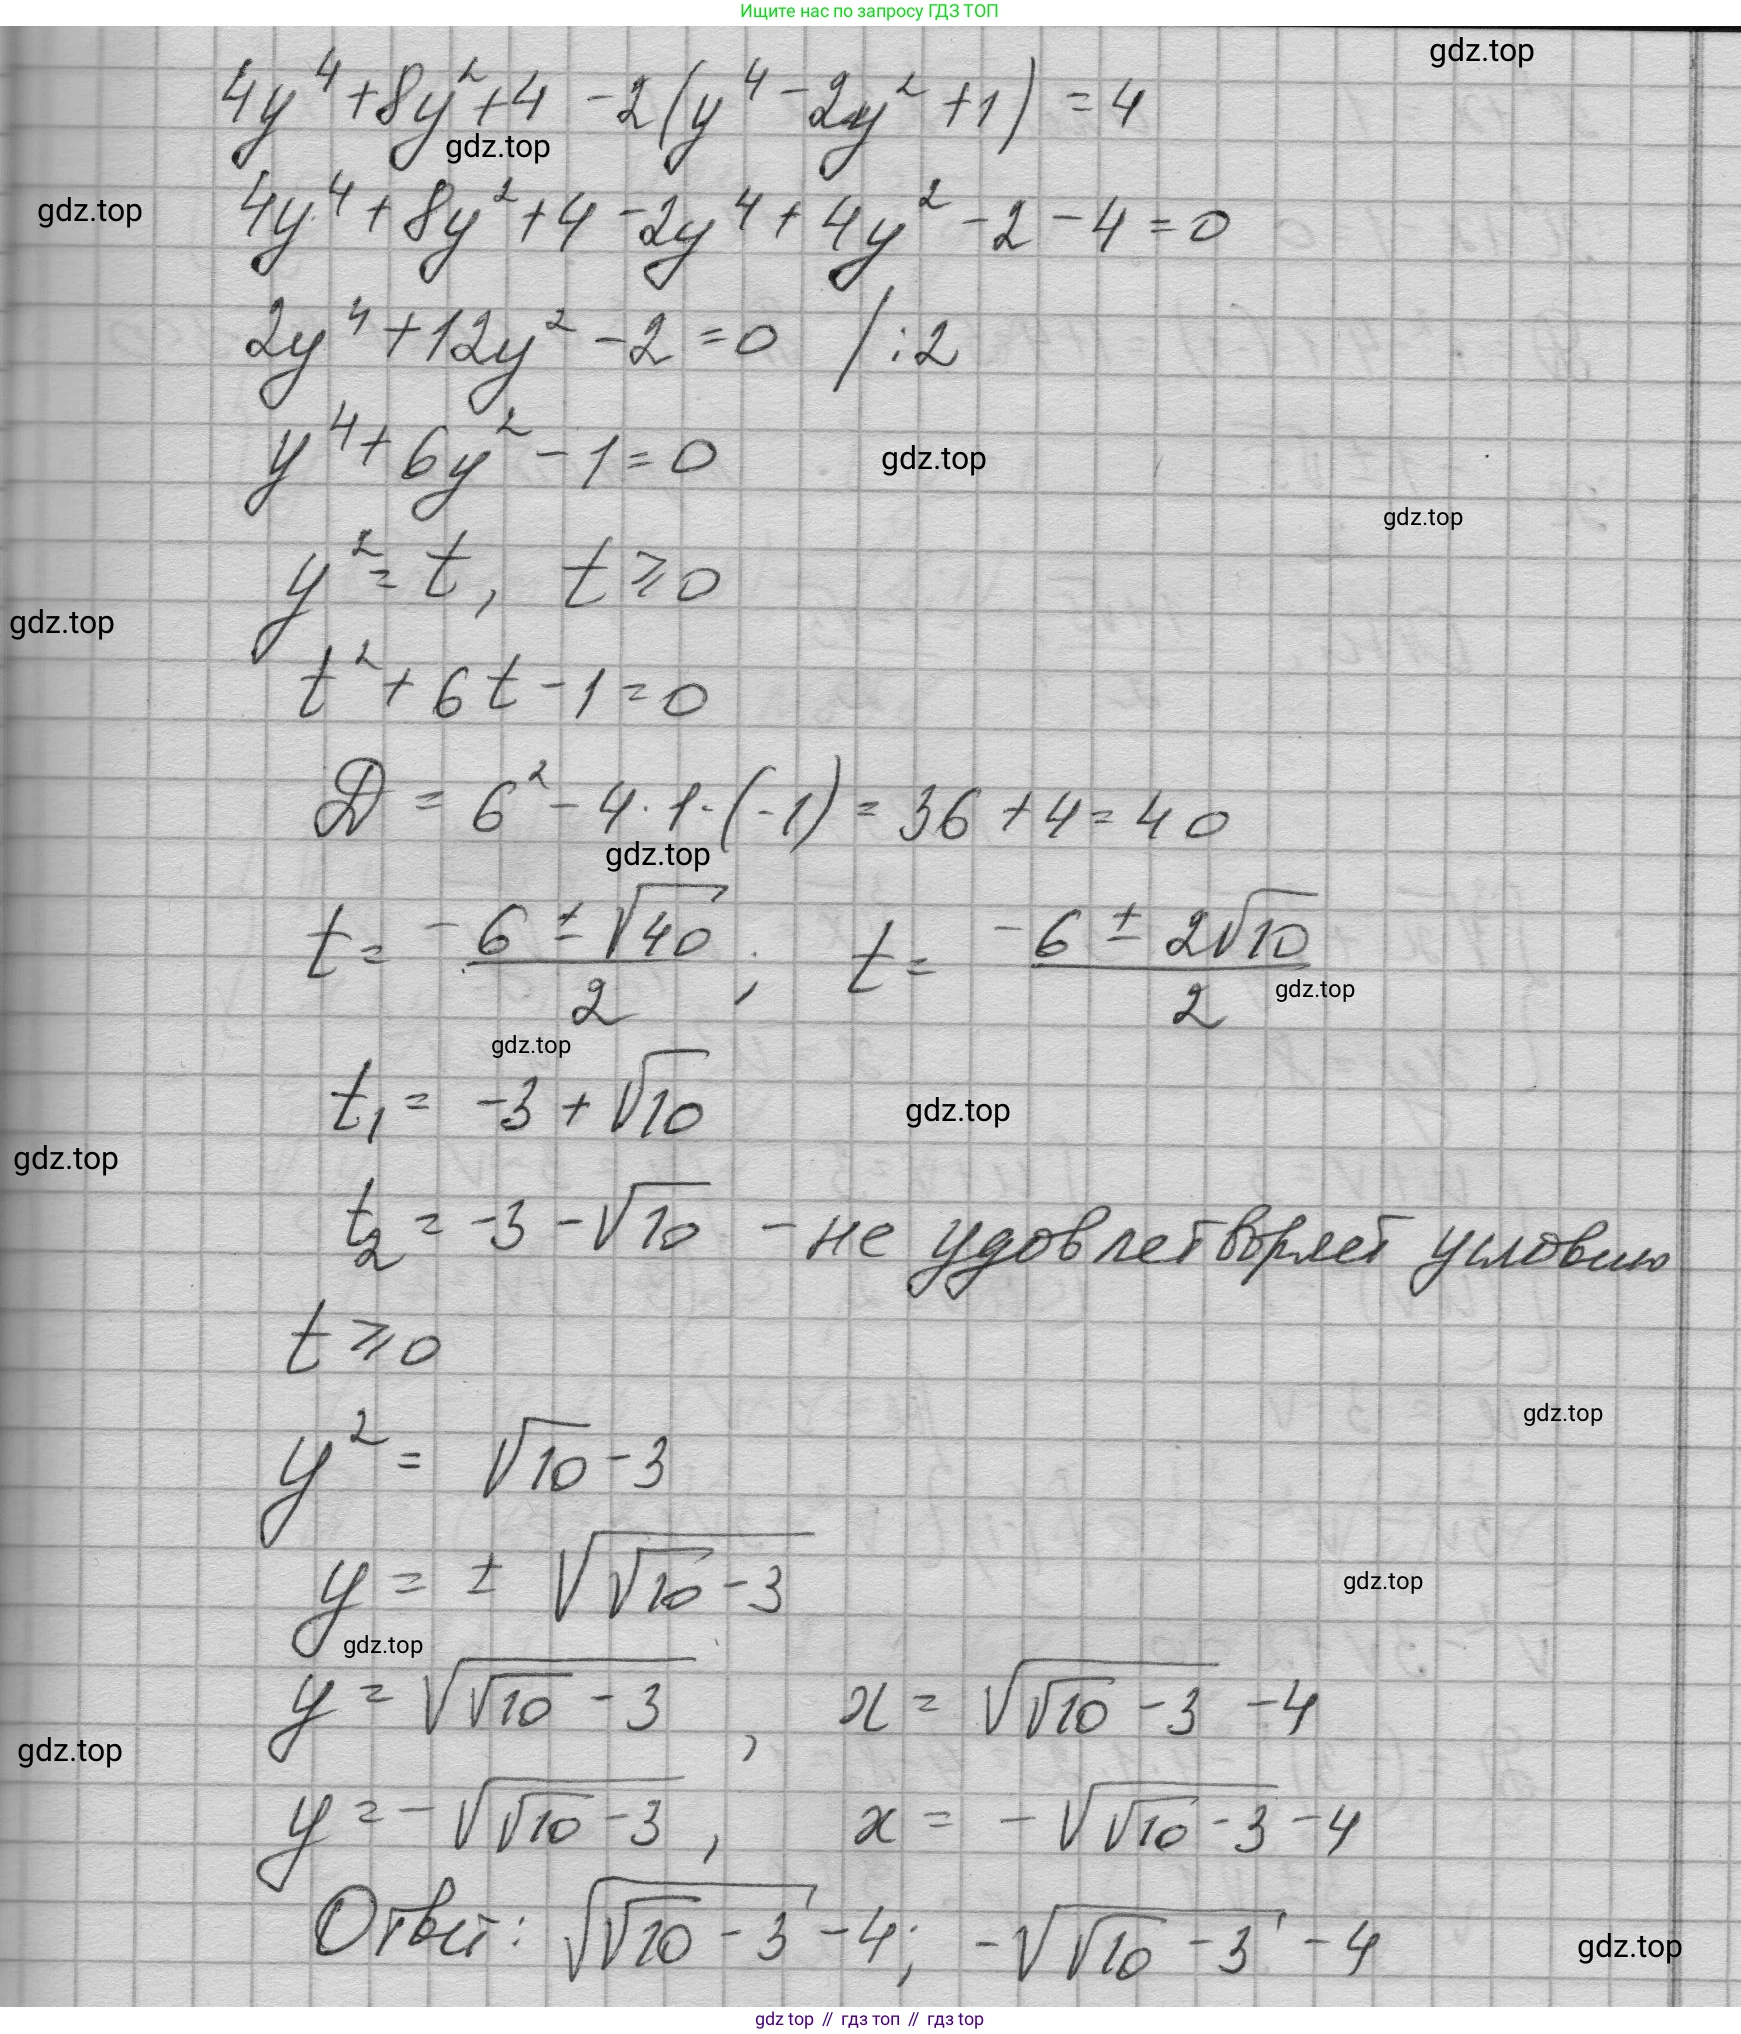 Ищите нас по запросу ГДЗ ТОП
gdz.top
4y⁴+8y²+4 -2(y⁴-2y²+1) =4
gdz.top
gdz.top
4y⁴+8y²+4-2y⁴+4y²-2-4=0
2y⁴+12y²-2=0 /:2
y⁴+6y²-1=0
gdz.top
gdz.top
y²=t, t≥0
gdz.top
t²+6t-1=0
D = 6²-4·1·(-1)=36+4=40
gdz.top
t= (-6±√40)/2; t= (-6±2√10)/2
gdz.top
gdz.top
t₁= -3+√10
gdz.top
gdz.top
t₂= -3-√10 - не удовлетворяет условию
t≥0
gdz.top
y²= √10-3
y= ± √(√10-3)
gdz.top
gdz.top
y=√(√10-3), x= √(√10-3) -4
gdz.top
y=-√(√10-3), x= -√(√10-3)-4
Ответ: √(√10-3)-4; -√(√10-3)-4
gdz.top
gdz top // гдз топ // гдз top